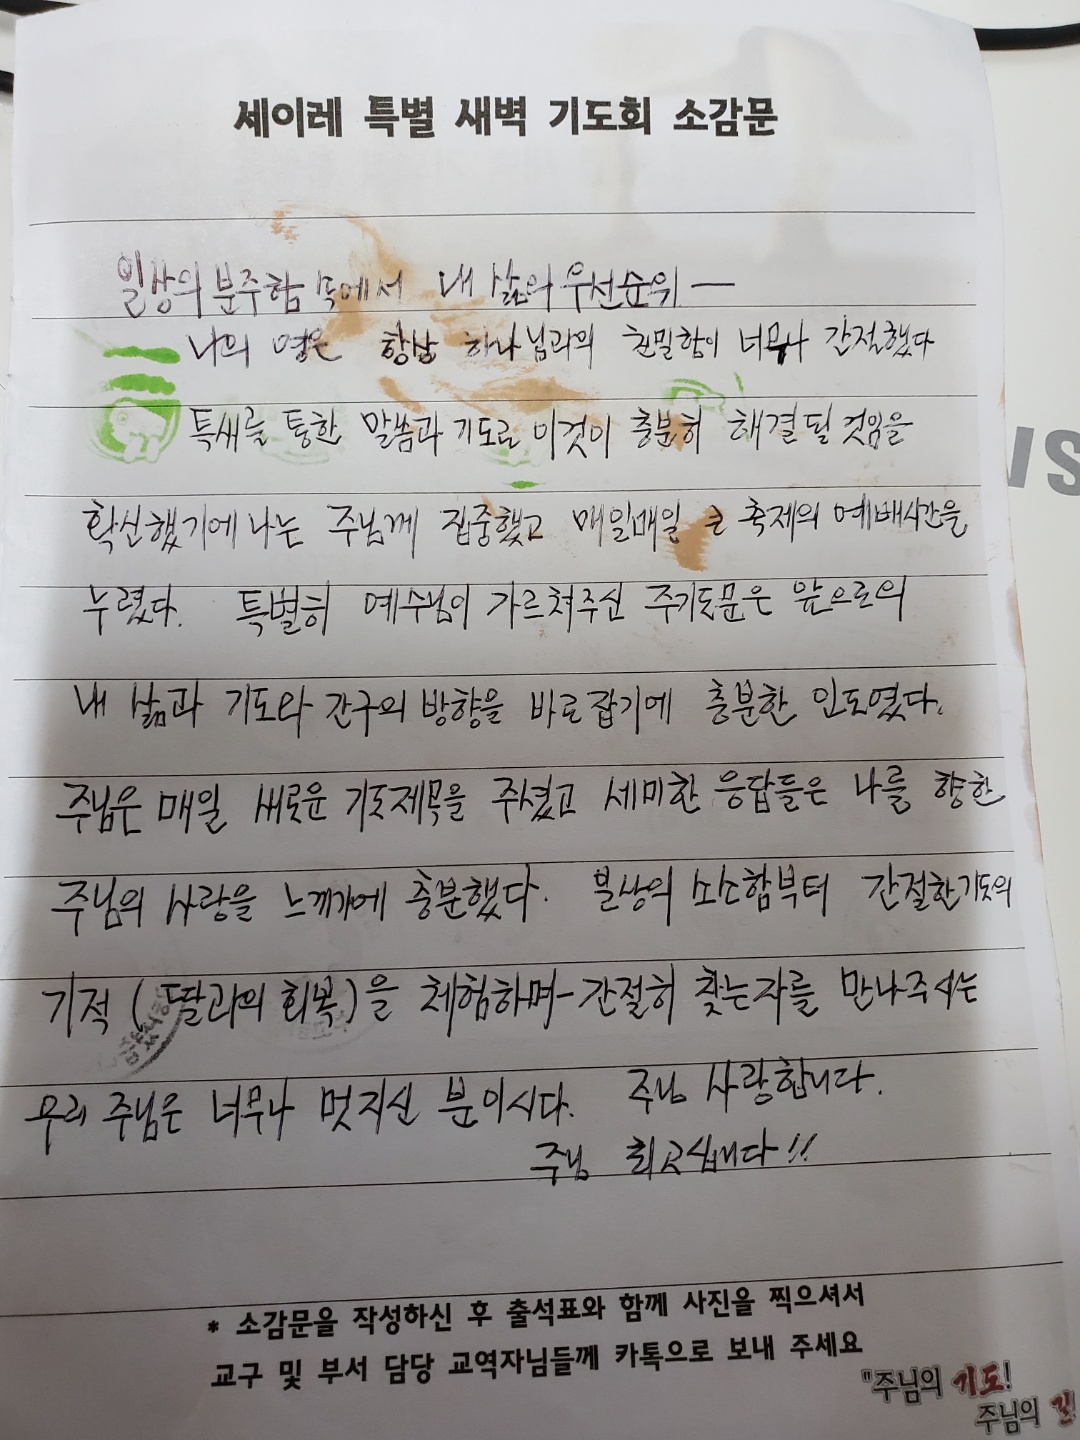 세이레 특별 새벽 기도회 소감문
일상의 분주함 속에서 내 삶의 우선순위 —
나의 영은 항상 하나님과의 친밀함이 너무나 간절했다
특새를 통한 말씀과 기도로 이것이 충분히 해결될 것임을
확신했기에 나는 주님께 집중했고 매일매일 큰 축제의 예배시간을
누렸다. 특별히 예수님이 가르쳐주신 주기도문은 앞으로의
내 삶과 기도와 간구의 방향을 바로잡기에 충분한 인도였다.
주님은 매일 새로운 기도제목을 주셨고 세미한 응답들은 나를 향한
주님의 사랑을 느끼기에 충분했다. 일상의 소소함부터 간절한 기도의
기적 (딸과의 회복)을 체험하며 - 간절히 찾는자를 만나주시는
우리 주님은 너무나 멋지신 분이시다. 주님 사랑합니다.
주님 최고십니다!!
* 소감문을 작성하신 후 출석표와 함께 사진을 찍으셔서
교구 및 부서 담당 교역자님들께 카톡으로 보내 주세요
"주님의 기도!
주님의 길